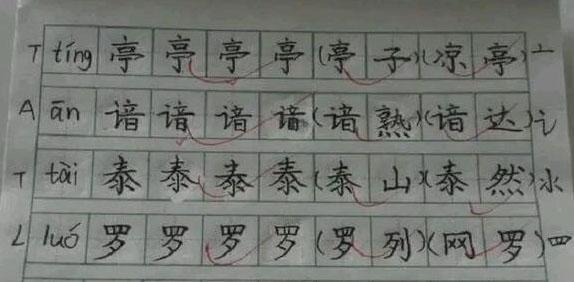 T tíng 亭 亭 亭 亭 (亭 子)(凉 亭) 亠
A ān 谙 谙 谙 谙 (谙 熟)(谙 达) 讠
T tài 泰 泰 泰 泰 (泰 山)(泰 然) 氺
L luó 罗 罗 罗 罗 (罗 列)(网 罗) 罒